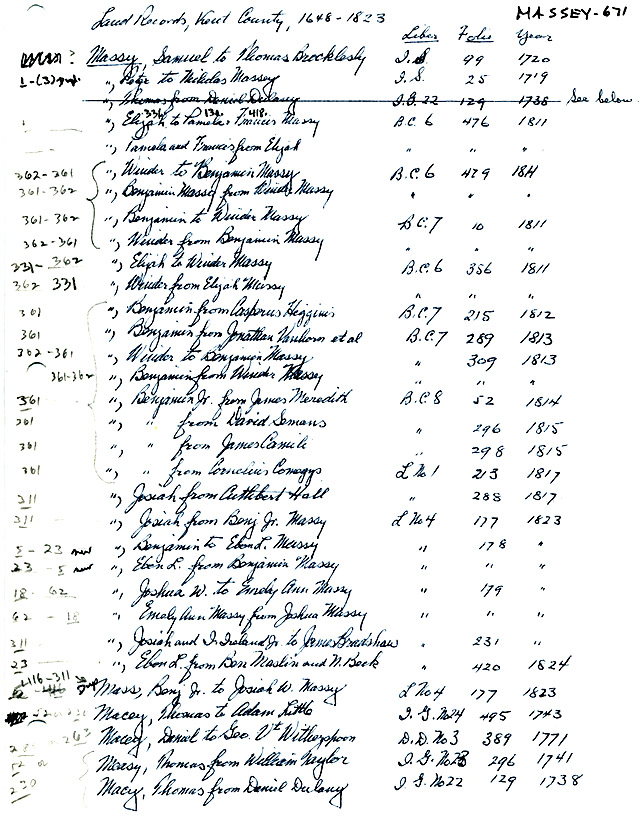 Land Records, Kent County, 1648-1823 MASSEY-671
Liber Folio Year
Massy, Samuel to Thomas Brocklesby I.S. 99 1720
1-(3) ", Peter to Nicholas Massey I.S. 25 1719
", Thomas from Daniel Dulany I.G. 22 129 1738 See below.
331 134 418
", Elijah to Pamela & Francis Massy B.C. 6 476 1811
", Pamela and Francis from Elijah " " "
362-361 ", Winder to Benjamin Massy B.C. 6 479 1811
361-362 ", Benjamin Massy from Winder Massy " " "
361-362 ", Benjamin to Winder Massy B.C. 7 10 1811
362-361 ", Winder from Benjamin Massy " " "
331-362 ", Elijah to Winder Massy B.C. 6 356 1811
362 331 ", Winder from Elijah Massy " " "
361 ", Benjamin from Casparus Higgins B.C. 7 215 1812
361 ", Benjamin from Jonathan Vanhorn et al B.C. 7 289 1813
362-361 ", Winder to Benjamin Massy " 309 1813
361-362 ", Benjamin from Winder Massy " " "
361 ", Benjamin Jr. from James Meredith B.C. 8 52 1814
361 ", " from David Semans " 296 1815
361 ", " from James Camile " 298 1815
361 ", " from Cornelius Comegys L No 1 213 1817
311 ", Josiah from Cuthbert Hall " 288 1817
311 ", Josiah from Benj Jr. Massy L No 4 177 1823
5-23 new ", Benjamin to Eben L. Massy " 178 "
23-5 new ", Eben L. from Benjamin Massy " " "
18-62 ", Joshua W. to Emely Ann Massy " 179 "
62-18 Emely Ann Massy from Joshua Massy " " "
311 ", Josiah and I. Ireland Jr. to James Bradshaw " 231 "
23 ", Eben L. from Ben Maslin and N. Beck " 420 1824
L116-311 Mass, Benj Jr. to Josiah W. Massy L No 4 177 1823
Macey, Thomas to Adam Little I.G. No 24 495 1743
263 Macey, Daniel to Geo. Vt Witherspoon D.D. No 3 389 1771
Macey, Thomas from William Naylor I.G. No 23 296 1741
230 Macy, Thomas from Daniel Dulany I G No 22 129 1738